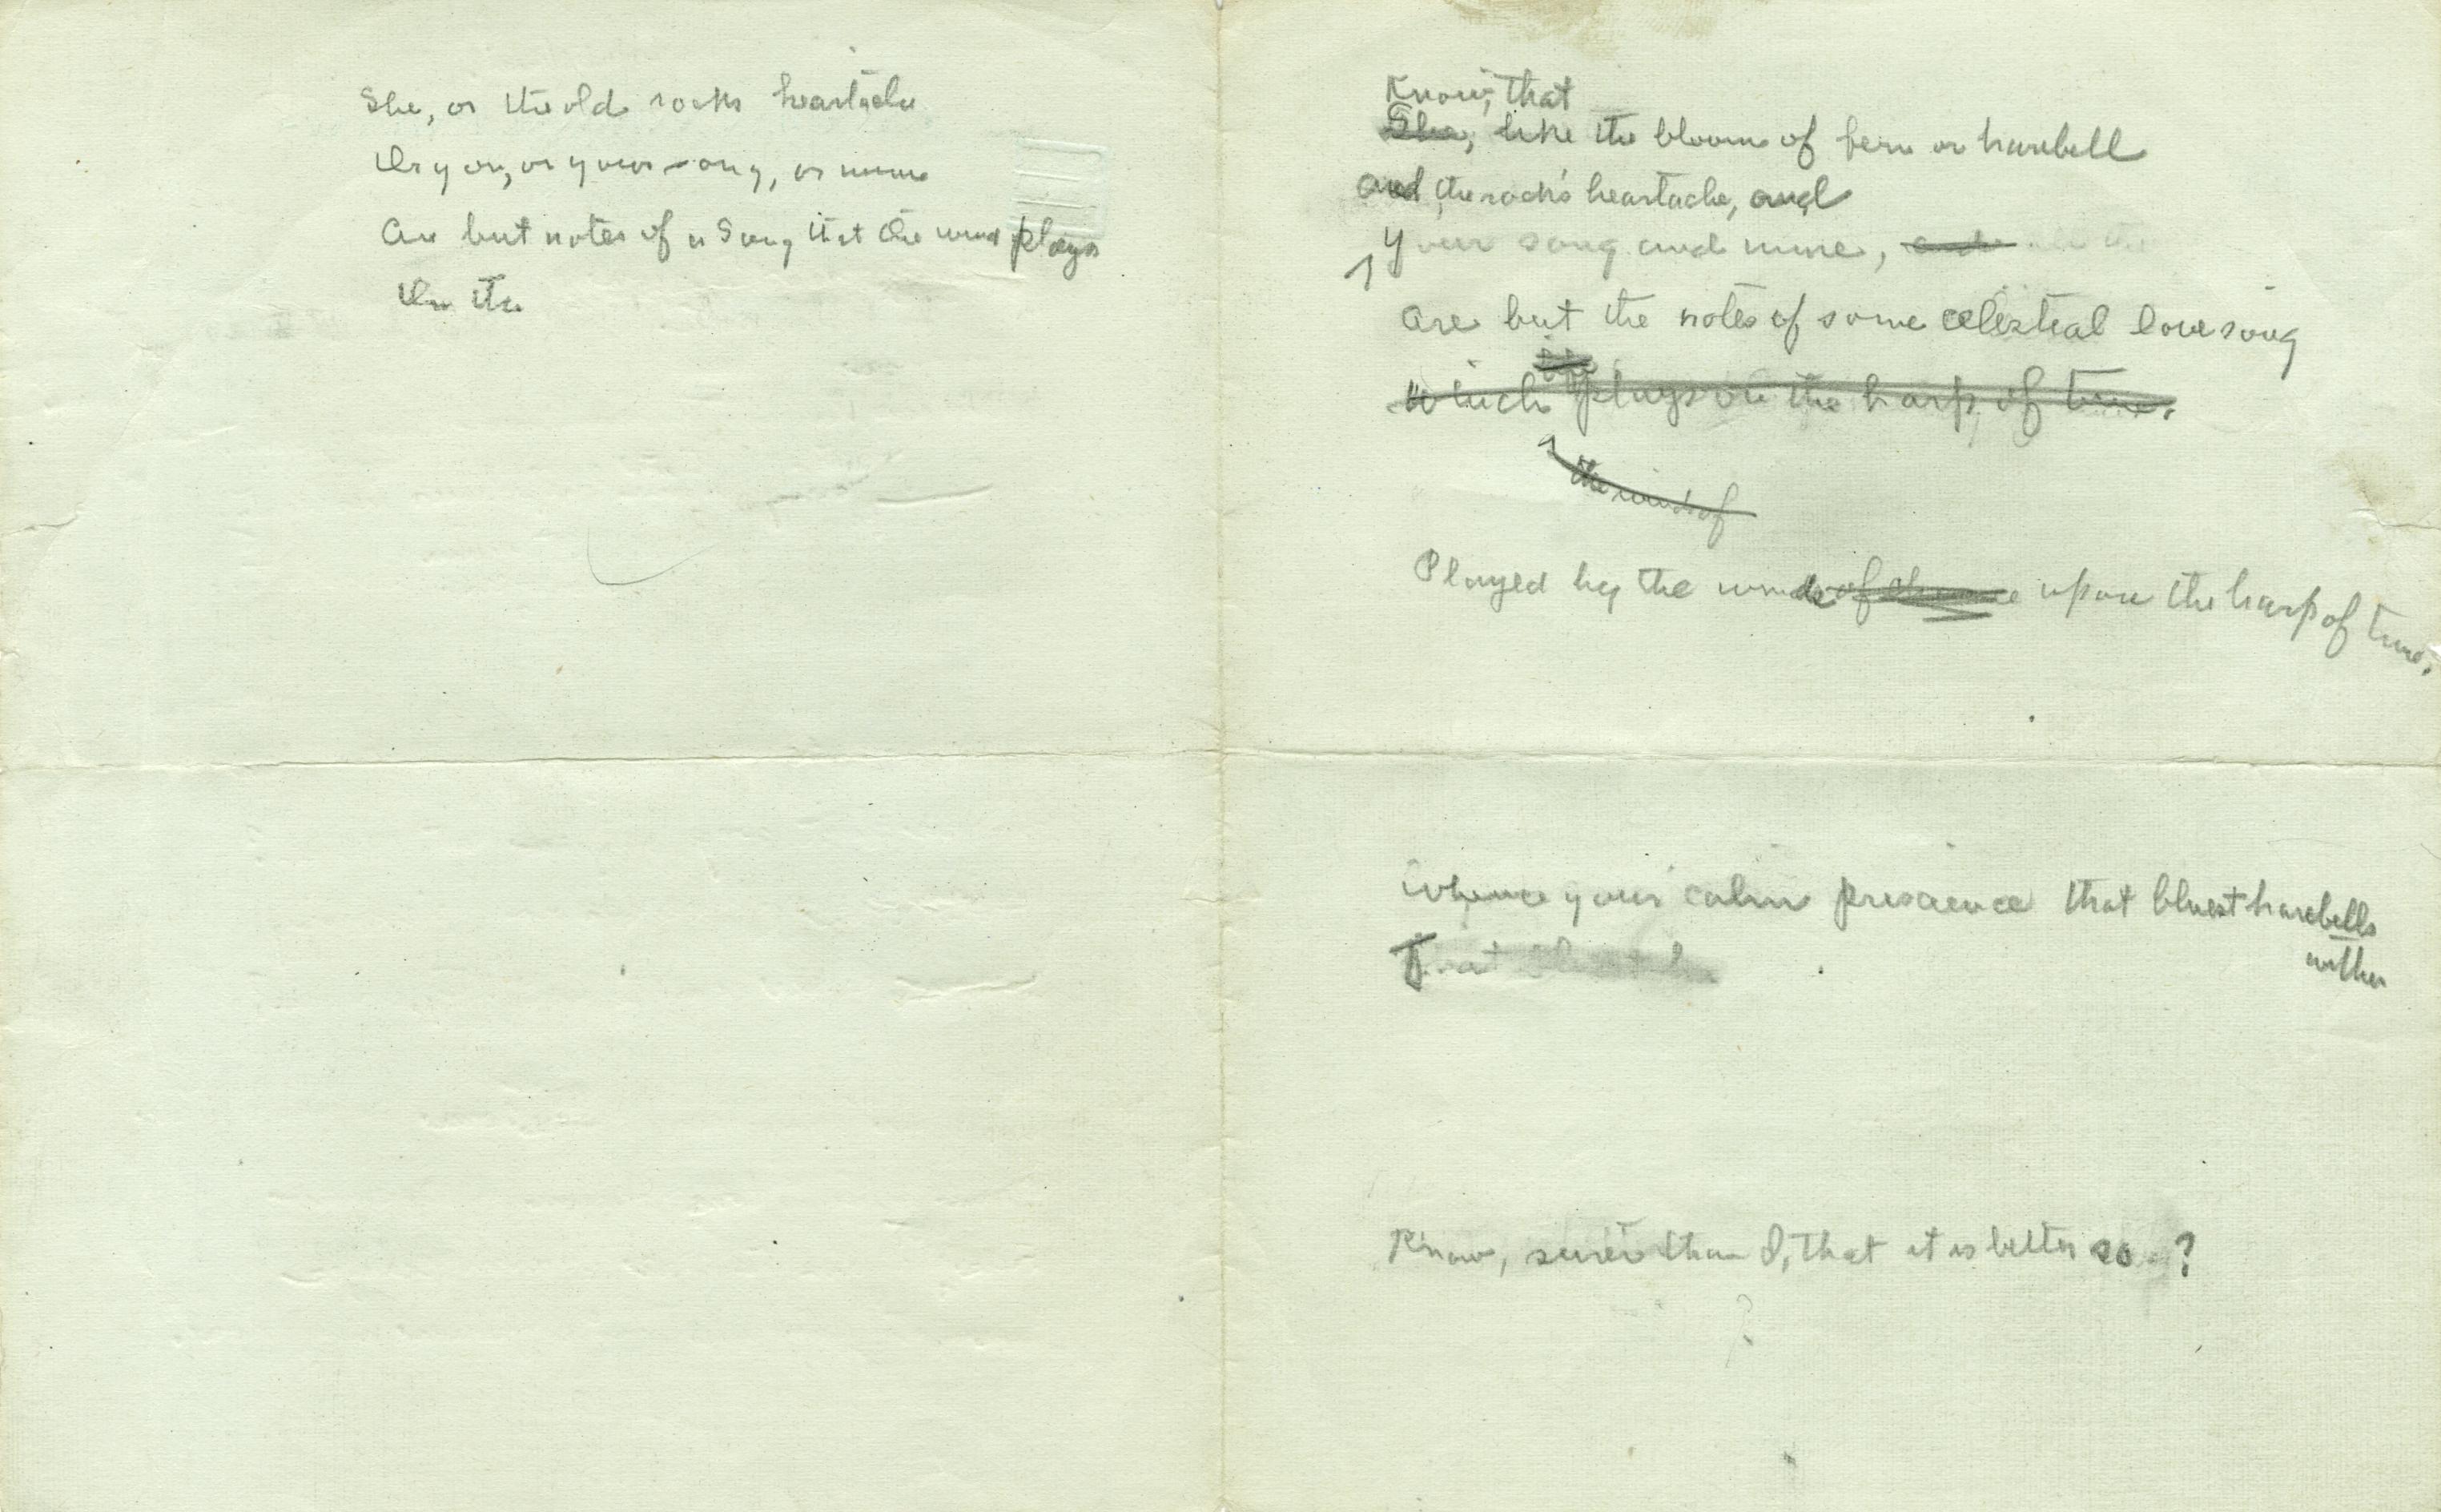 She, or the old rocks heartache
Or you, or your song, or mine
Are but notes of a Song that the wind plays
On the
Know, that
She, like the bloom of fern or harebell
and the rock's heartache, and
Your song and mine, and
Are but the notes of some celestial love song
which plays on the harp of time.
the winds of
Played by the winds of upon the harp of time.
Whence your calm prescience that bluest harebells
wither
That bluest
Know, surer than I, that it is better so ?
?